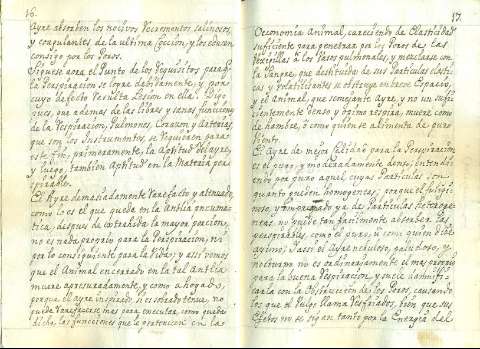 16.
Ayre absorben los nocivos Recrementos salinosos,
y coagulantes de la ultima Coccion, y los echan
consigo por los Poros.
Siguese aora el Punto de los requisitos para q
la Respiracion se logre debidamente, y por
cuyo defecto resulta Lesion en ella. Digo
pues, que ademas de las libres y sanas funciones
de la Respiracion, Pulmones, Corazon, y Arterias
que son los Instrumentos se requieren para
este fin, primeramente, la Aptitud del ayre,
y luego, tambien Aptitud en la Materia per
spirable.
El Ayre demasiadamente rarefacto y atenuado,
como lo es el que queda en la Antlia pneuma
tica, despues de extrahida la mayor porcion,
no es nada proprio para la Respiracion, ni
por lo consiguiente para la Vida; y assi vemos
que el Animal encerrado en la tal Antlia
muere apresuradamente, y como ahogado,
porque el ayre inspirado si es sobrado tenue, no
puede rarefacerse mas para executar, como queda
dicho, las funciones que le pertenecen en las
17.
Oeconomia Animal, careciendo de Elasticidad
suficiente para penetrar por los Poros de las
Vexiculas a los Vasos pulmonales, y mezclarse con
la Sangre, que destituida de sus Particulas elasti
cas y volatilizantes se
y el Animal, que semejante Ayre, y no un sufi
cientemente denso y opimo respira, muere como
de hambre, ó como quien se alimenta de puro
viento.
El Ayre de mejor calidad para la Respiracion
es el puro, y moderadamente denso, entendi
endo por puro aquel, cuyas Particulas son
quanto pueden homogeneas; porque el
noso, y impregnado ya de Particulas Heteroge
neas no puede tan facilmente absorber las
perspirables, como el puro, ú como quien dice
ayuno; Tassi el Ayre nebuloso, paludoso, y
nocturno no es ordinariamente el mas proprio
para la buena Respiracion, y suele damnifi
carla con la Obstruccion de los Poros, causando
los que el Vulgo llama Resfriados, bien que sus
Efectos no se sigan tanto por la Energia del